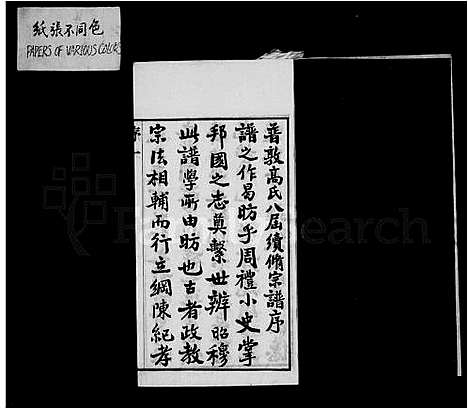 紙張不同色
PAPERS OF VARIOUS COLORS
普敦高氏八屆續脩宗譜序
譜之作昜昉乎周禮小史掌
邦國之志奠繫世辨昭穆
此譜學所由昉也古者政教
宗法相輔而行立綱陳紀孝
序一
FamilySearch